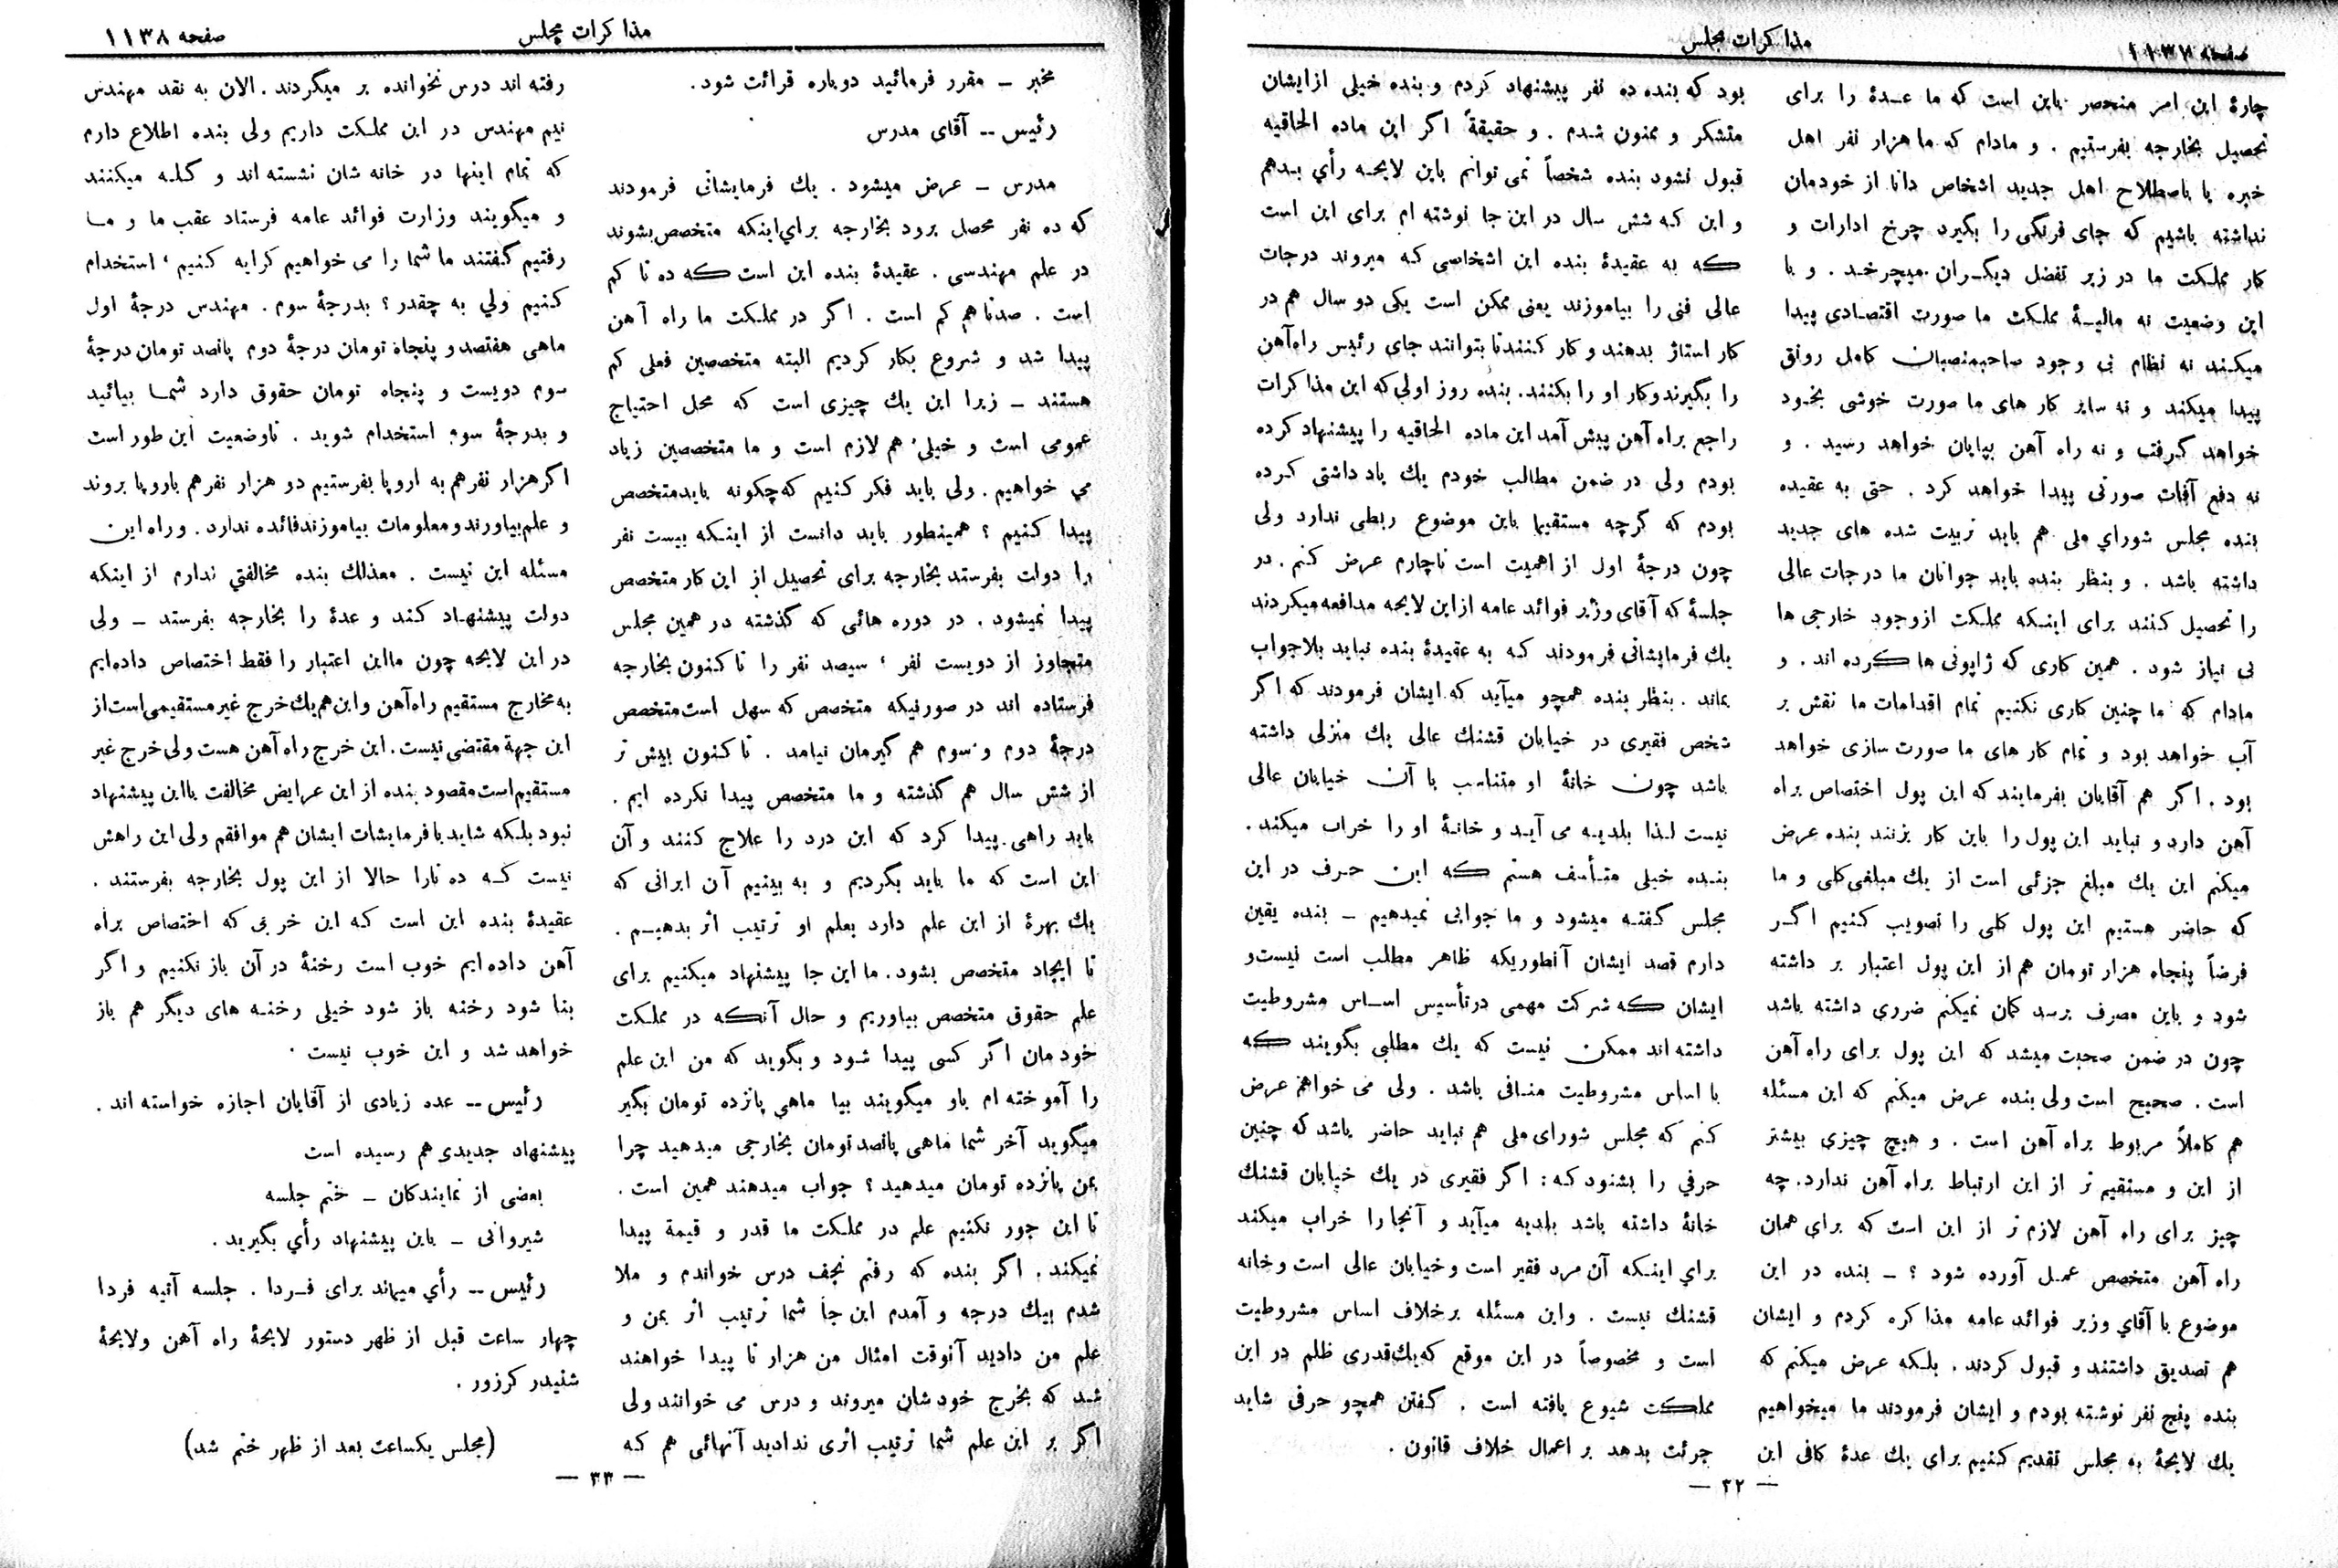 صفحه ۱۱۳۷
مذاکرات مجلس
چارهٔ این امر منحصر باین است که ما عدهٔ را برای
تحصیل بخارجه بفرستیم . و مادام که ما هزار نفر اهل
خبره یا باصطلاح اهل جدید اشخاص دانا از خودمان
نداشته باشیم که جای فرنگی را بگیرد چرخ ادارات و
کار مملکت ما در زیر تفضل دیگران میچرخد . و با
این وضعیت نه مالیهٔ مملکت ما صورت اقتصادی پیدا
میکند نه نظام بی وجود صاحبمنصبان کامل رونق
پیدا میکند و نه سایر کار های ما صورت خوشی بخود
خواهد گرفت و نه راه آهن بپایان خواهد رسید . و
نه دفع آفات صورتی پیدا خواهد کرد . حتی به عقیده
بنده مجلس شورای ملی هم باید تربیت شده های جدید
داشته باشد . و بنظر بنده باید جوانان ما درجات عالی
را تحصیل کنند برای اینکه مملکت از وجود خارجی ها
بی نیاز شود . همین کاری که ژاپونی ها کرده اند . و
مادام که ما چنین کاری نکنیم تمام اقدامات ما نقش بر
آب خواهد بود و تمام کار های ما صورت سازی خواهد
بود . اگر هم آقایان بفرمایند که این پول اختصاص براه
آهن دارد و نباید این پول را باین کار بزنند بنده عرض
میکنم این یك مبلغ جزئی است از یك مبلغی کلی و ما
که حاضر هستیم این پول کلی را تصویب کنیم اگر
فرضاً پنجاه هزار تومان هم از این پول اعتبار بر داشته
شود و باین مصرف برسد گمان نمیکنم ضرری داشته باشد
چون در ضمن صحبت میشد که این پول برای راه آهن
است . صحیح است ولی بنده عرض میکنم که این مسئله
هم کاملاً مربوط براه آهن است . و هیچ چیزی بیشتر
از این و مستقیم تر از این ارتباط براه آهن ندارد. چه
چیز برای راه آهن لازم تر از این است که برای همان
راه آهن متخصص عمل آورده شود ؟ – بنده در این
موضوع با آقای وزیر فوائد عامه مذاکره کردم و ایشان
هم تصدیق داشتند و قبول کردند . بلکه عرض میکنم که
بنده پنج نفر نوشته بودم و ایشان فرمودند ما میخواهیم
یك لایحهٔ به مجلس تقدیم کنیم برای یك عدهٔ کافی این
بود که بنده ده نفر پیشنهاد کردم و بنده خیلی از ایشان
متشکر و ممنون شدم . و حقیقةً اگر این ماده الحاقیه
قبول نشود بنده شخصاً نمی توانم باین لایحه رأی بدهم
و این که شش سال در این جا نوشته ام برای این است
که به عقیدهٔ بنده این اشخاصی که میروند درجات
عالی فنی را بیاموزند یعنی ممکن است یکی دو سال هم در
کار استاژ بدهند و کار کنند تا بتوانند جای رئیس راه آهن
را بگیرند و کار او را بکنند. بنده روز اولی که این مذاکرات
راجع براه آهن پیش آمد این ماده الحاقیه را پیشنهاد کرده
بودم ولی در ضمن مطالب خودم یك یاد داشتی کرده
بودم که گرچه مستقیما باین موضوع ربطی ندارد ولی
چون درجهٔ اول از اهمیت است ناچارم عرض کنم . در
جلسهٔ که آقای وزیر فوائد عامه از این لایحه مدافعه میکردند
یك فرمایشاتی فرمودند که به عقیدهٔ بنده نباید بلاجواب
بماند . بنظر بنده همچو میآید که ایشان فرمودند که اگر
شخص فقیری در خیابان قشنك عالی یك منزلی داشته
باشد چون خانهٔ او متناسب با آن خیابان عالی
نیست لذا بلدیه می آید و خانهٔ او را خراب میکند .
بنده خیلی متأسف هستم که این حرف در این
مجلس گفته میشود و ما جوابی نمیدهیم – بنده یقین
دارم قصد ایشان آنطوریکه ظاهر مطلب است نیست و
ایشان که شرکت مهمی در تأسیس اساس مشروطیت
داشته اند ممکن نیست که یك مطلبی بگویند که
با اساس مشروطیت منافی باشد . ولی می خواهم عرض
کنم که مجلس شورای ملی هم نباید حاضر باشد که چنین
حرفی را بشنود که : اگر فقیری در یك خیابان قشنك
خانهٔ داشته باشد بلدیه میآید و آنجا را خراب میکند
برای اینکه آن مرد فقیر است و خیابان عالی است و خانه
قشنك نیست . و این مسئله برخلاف اساس مشروطیت
است و مخصوصاً در این موقع که یك قدری ظلم در این
مملکت شیوع یافته است . گفتن همچو حرفی شاید
جرئت بدهد بر اعمال خلاف قانون .
— ۳۲ —
مذاکرات مجلس
صفحه ۱۱۳۸
مخبر – مقرر فرمائید دوباره قرائت شود.
رئیس -- آقای مدرس
مدرس – عرض میشود . یك فرمایشاتی فرمودند
که ده نفر محصل برود بخارجه برای اینکه متخصص بشوند
در علم مهندسی . عقیدهٔ بنده این است که ده تا کم
است . صدتا هم کم است . اگر در مملکت ما راه آهن
پیدا شد و شروع بکار کردیم البته متخصصین فعلی کم
هستند – زیرا این یك چیزی است که محل احتیاج
عمومی است و خیلی هم لازم است و ما متخصصین زیاد
می خواهیم . ولی باید فکر کنیم که چگونه باید متخصص
پیدا کنیم ؟ همینطور باید دانست از اینکه بیست نفر
را دولت بفرستد بخارجه برای تحصیل از این کار متخصص
پیدا نمیشود . در دوره هائی که گذشته در همین مجلس
متجاوز از دویست نفر ، سیصد نفر را تاکنون بخارجه
فرستاده اند در صورتیکه متخصص که سهل است متخصص
درجهٔ دوم و سوم هم گیرمان نیامد . تاکنون بیش تر
از شش سال هم گذشته و ما متخصص پیدا نکرده ایم .
باید راهی پیدا کرد که این درد را علاج کنند و آن
این است که ما باید بگردیم و به بینیم آن ایرانی که
یك بهرهٔ از این علم دارد بعلم او ترتیب اثر بدهیم .
تا ایجاد متخصص بشود. ما این جا پیشنهاد میکنیم برای
علم حقوق متخصص بیاوریم و حال آنکه در مملکت
خودمان اگر کسی پیدا شود و بگوید که من این علم
را آموخته ام باو میگویند بیا ماهی پانزده تومان بگیر
میگوید آخر شما ماهی پانصد تومان بخارجی میدهید چرا
بمن پانزده تومان میدهید ؟ جواب میدهند همین است .
تا این جور نکنیم علم در مملکت ما قدر و قیمة پیدا
نمیکند . اگر بنده که رفتم نجف درس خواندم و ملا
شدم بیك درجه و آمدم این جا شما ترتیب اثر بمن و
علم من دادید آنوقت امثال من هزار تا پیدا خواهند
شد که بخرج خودشان میروند و درس می خوانند ولی
اگر بر این علم شما ترتیب اثری ندادید آنهائی هم که
رفته اند درس نخوانده بر میگردند . الان به نقد مهندس
نیم مهندس در این مملکت داریم ولی بنده اطلاع دارم
که تمام اینها در خانه شان نشسته اند و گله میکنند
و میگویند وزارت فوائد عامه فرستاد عقب ما و ما
رفتیم گفتند ما شما را می خواهیم کرایه کنیم ، استخدام
کنیم ولی به چقدر ؟ بدرجهٔ سوم . مهندس درجهٔ اول
ماهی هفتصد و پنجاه تومان درجهٔ دوم پانصد تومان درجهٔ
سوم دویست و پنجاه تومان حقوق دارد شما بیائید
و بدرجهٔ سوم استخدام شوید . تا وضعیت این طور است
اگر هزار نفر هم به اروپا بفرستیم دو هزار نفر هم باروپا بروند
و علم بیاورند و معلومات بیاموزند فائده ندارد . و راه این
مسئله این نیست . معذلك بنده مخالفتی ندارم از اینکه
دولت پیشنهاد کند و عدهٔ را بخارجه بفرستد – ولی
در این لایحه چون ما این اعتبار را فقط اختصاص داده ایم
به مخارج مستقیم راه آهن و این هم یك خرج غیر مستقیمی است از
این جهة مقتضی نیست . این خرج راه آهن هست ولی خرج غیر
مستقیم است مقصود بنده از این عرایض مخالفت با این پیشنهاد
نبود بلکه شاید با فرمایشات ایشان هم موافقم ولی این راهش
نیست که ده تا را حالا از این پول بخارجه بفرستند .
عقیدهٔ بنده این است که این خرجی که اختصاص براه
آهن داده ایم خوب است رخنهٔ در آن باز نکنیم و اگر
بنا شود رخنه باز شود خیلی رخنه های دیگر هم باز
خواهد شد و این خوب نیست .
رئیس -- عده زیادی از آقایان اجازه خواسته اند .
پیشنهاد جدیدی هم رسیده است
بعضی از نمایندکان – ختم جلسه
شیروانی – باین پیشنهاد رأی بگیرید .
رئیس -- رأی میماند برای فردا . جلسه آتیه فردا
چهار ساعت قبل از ظهر دستور لایحهٔ راه آهن ولایحهٔ
شنیدر کرزور .
(مجلس یکساعت بعد از ظهر ختم شد)
— ۳۳ —